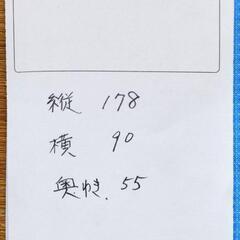 縦 178
横 90
奥ゆき. 55